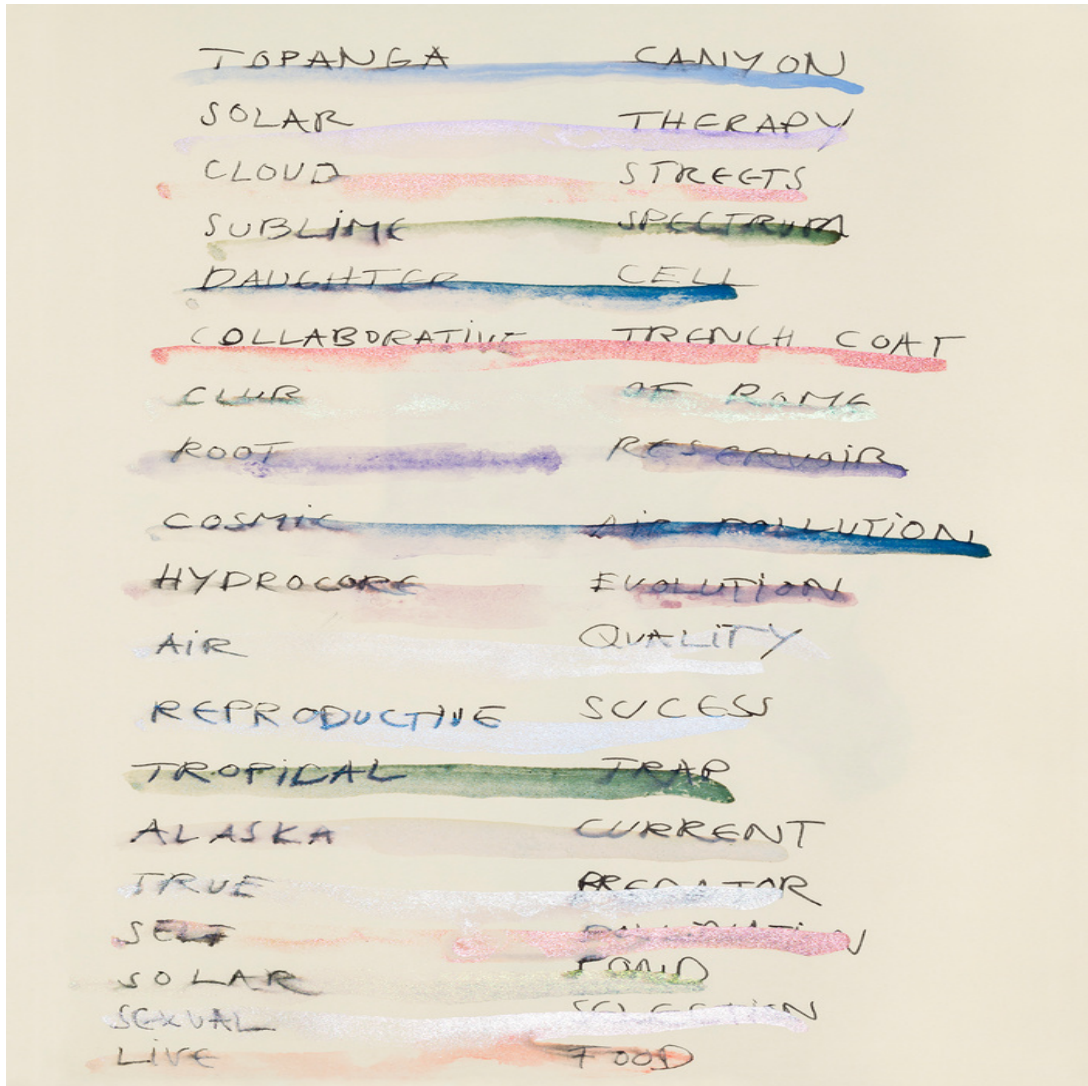 TOPANGA CANYON
SOLAR THERAPY
CLOUD STREETS
SUBLiME SPECTRUM
DAUGHTER CELL
COLLABORATiVE TRENCH COAT
CLUB OF ROME
ROOT RESERVOiR
COSMiC AiR POLLUTiON
HYDROCORE EVOLUTiON
AiR QUALiTY
REPRODUCTIVE SUCESS
TROPiCAL TRAP
ALASKA CURRENT
TRUE PREDATOR
SELF POLLiNATiON
SOLAR POND
SEXUAL SELECTION
LiVE FOOD